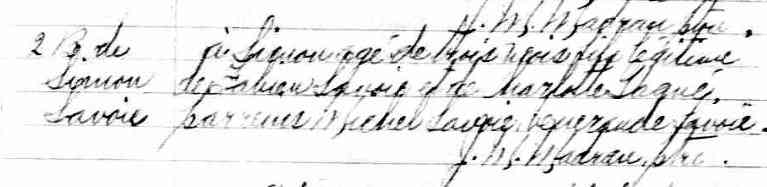 J. M. Madran ptre.
2 B. de à Simon agé de trois mois fils légitime
Simon de Fabien Savoie et de Charlotte Gagné,
Savoie parrains Michel Savoie, Savoie.
J. M. Madran, ptre.